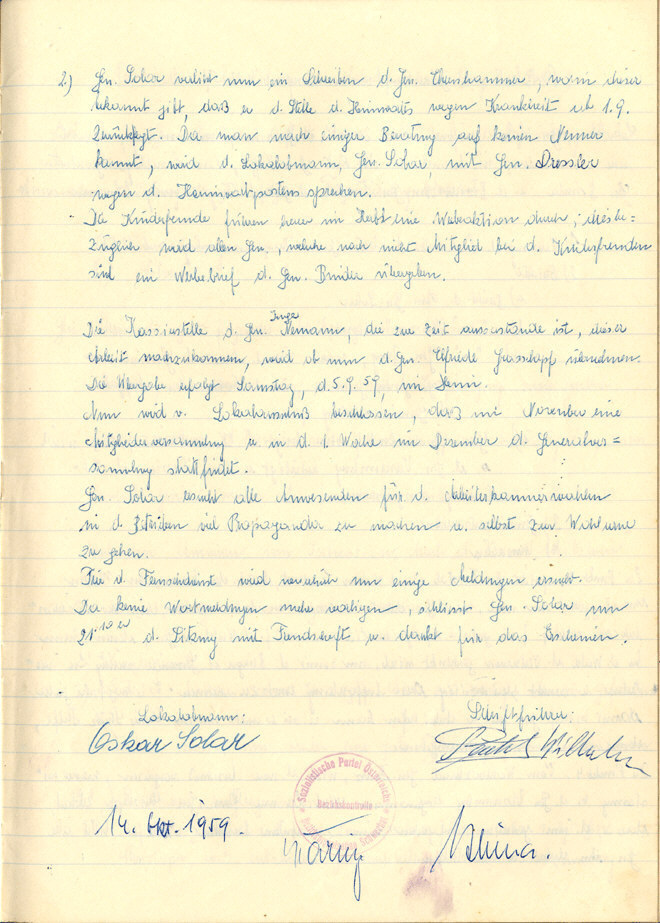 2.) Gen. Solar verliest nun ein Schreiben d. Gen. , worin dieser
bekannt gibt, daß er d. Stelle d. Heimwarts wegen Krankheit ab 1.9.
zurücklegt. Da man nach einiger Beratung auf keinen Nenner
kommt, wird d. Lokalobmann, Gen. Solar, mit Gen. Dressler
wegen d. Heimwartpostens sprechen.
Die Kinderfreunde führen heuer im Herbst eine Werbeaktion durch; diesbe=
züglich wird allen Gen., welche noch nicht Mitglied bei d. Kinderfreunden
sind ein Werbebrief d. Gen. Binder übergeben.
Die Kassierstelle d. Gen. Inge Nemann, die zur Zeit ausserstande ist, dieser
Arbeit nachzukommen, wird ab nun d. Gen. Elfriede Grasschopf übernehmen.
Die Übergabe erfolgt Samstag, d. 5.9.59, im Heim.
Nun wird v. Lokalausschuß beschlossen, daß im November eine
Mitgliederversammlung u. in d. 1. Woche im Dezember d. Generalver=
sammlung stattfindet.
Gen. Solar ersucht alle Anwesenden für d. Arbeiterkammerwahlen
in d. Betrieben viel Propaganda zu machen u. selbst zur Wahlurne
zu gehen.
Für d. wird um einige Meldungen ersucht.
Da keine Wortmeldungen mehr vorliegen, schliesst Gen. Solar um
21.10 d. Sitzung mit Freundschaft u. dankt für das Erscheinen.
Lokalobmann: Schriftführer:
Oskar Solar Wilhelm
Sozialistische Partei Österreichs
Bezirksstelle
14. Okt. 1959.